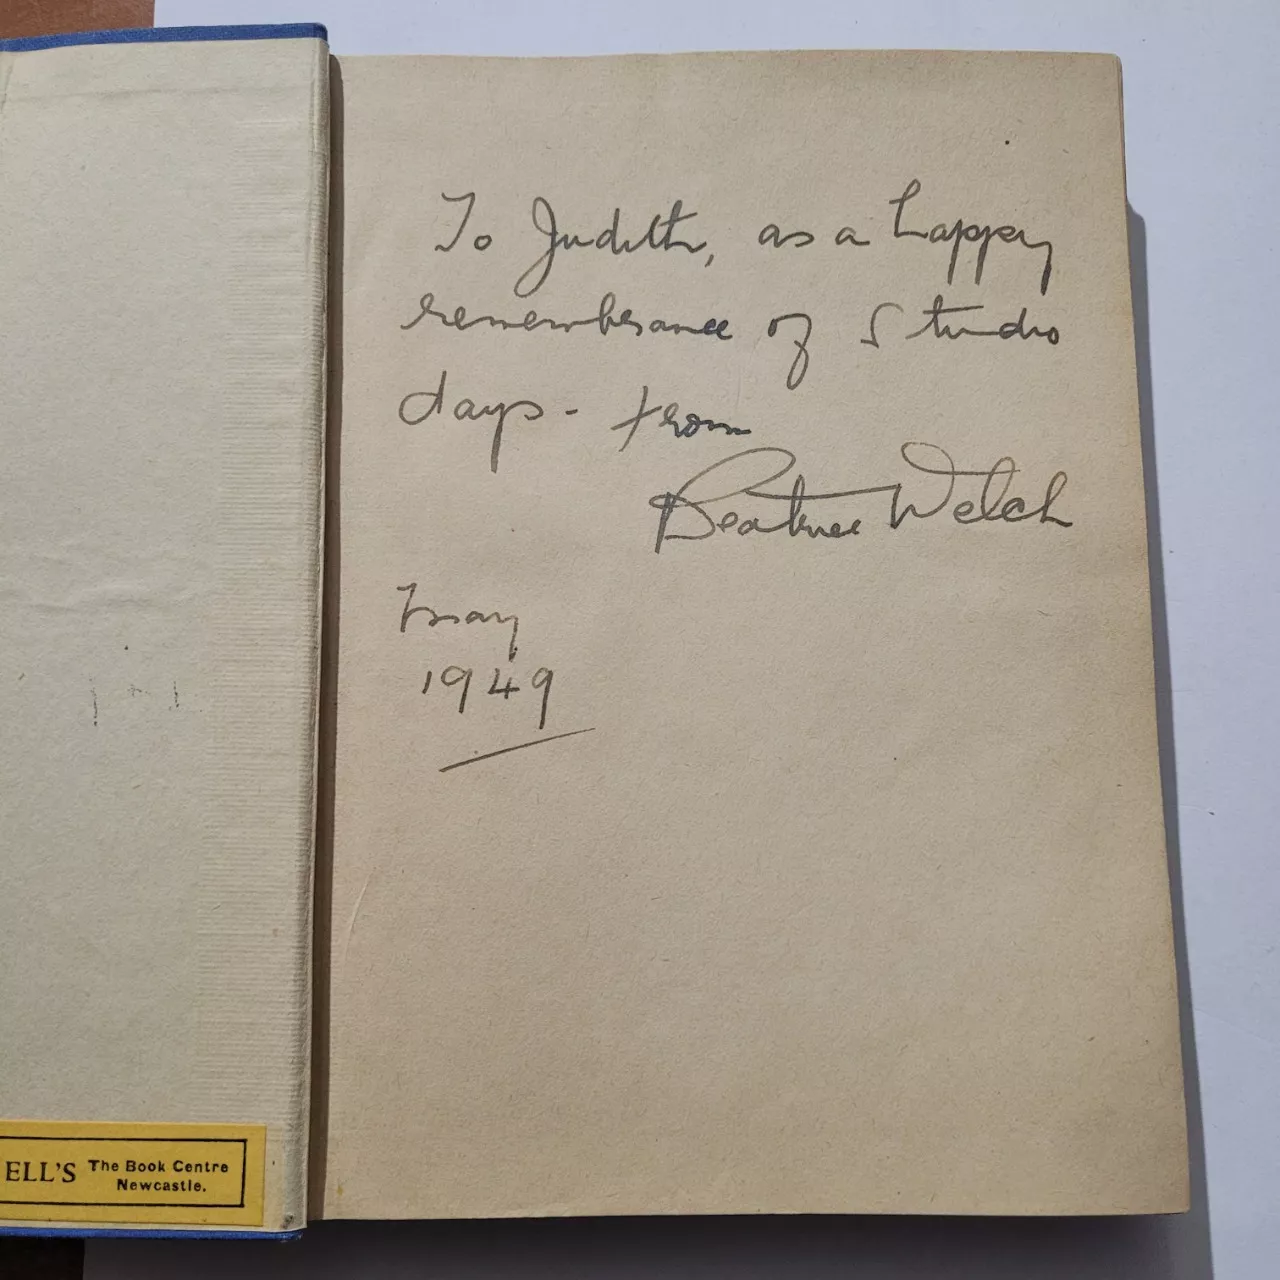 To Judith, as a happy
remembrance of Studio
days - from
Beatrice Welch
May
1949
ELL'S The Book Centre
Newcastle.